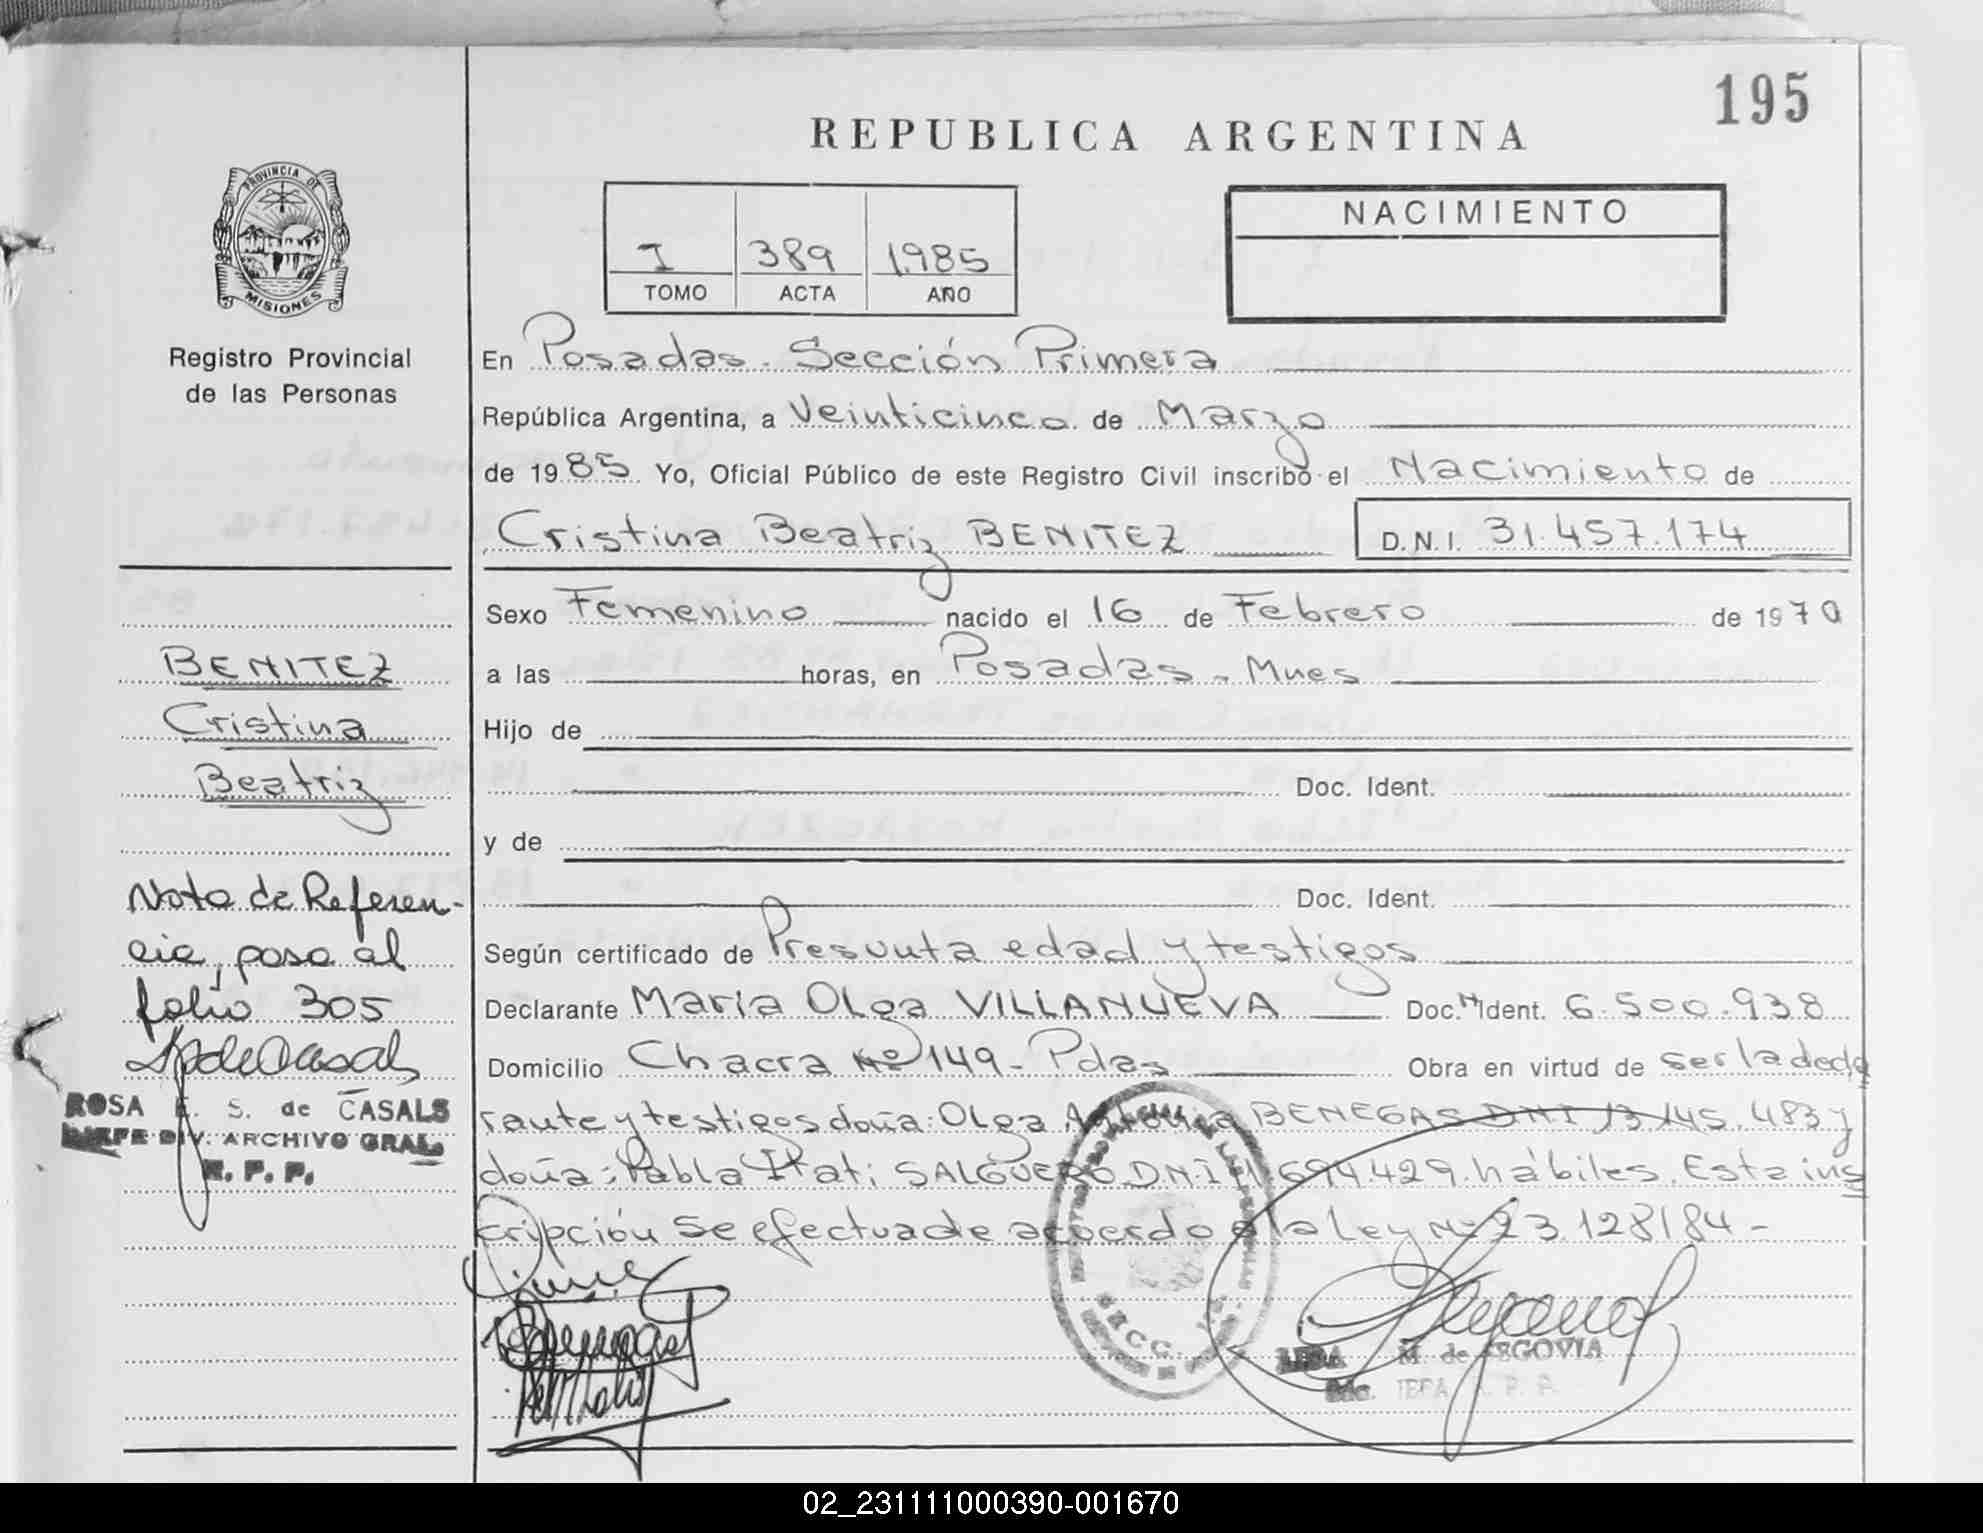 195
REPUBLICA ARGENTINA
PROVINCIA DE
MISIONES
I 389 1.985
TOMO ACTA AÑO
NACIMIENTO
Registro Provincial
de las Personas
En Posadas - Sección Primera
República Argentina, a Veinticinco de Marzo
de 1985 Yo, Oficial Público de este Registro Civil inscribo el Nacimiento de
Cristina Beatriz BENITEZ D.N.I. 31.457.174
Sexo Femenino nacido el 16 de Febrero de 1970
a las horas, en Posadas - Mnes
Hijo de
Doc. Ident.
y de
Doc. Ident.
Según certificado de Presunta edad y testigos
Declarante María Olga VILLANUEVA Doc. Ident. 6.500.938
Domicilio Chacra Nº 149 - Pdas Obra en virtud de ser la decla
rante y testigos doña: Olga Antonia BENEGAS DNI 13.145.483 y
doña: Pabla Itatí SALGUERO D.N.I. 694.429. hábiles. Esta ins
cripción se efectua de acuerdo a la Ley Nº 23.128/84 -
BENITEZ
Cristina
Beatriz
Nota de Referen-
cia, pasa al
folio 305
ROSA E. S. de CASALS
JEFE DIV. ARCHIVO GRAL.
R. P. P.
M. de SEGOVIA
JEFA R. P. P.
02_231111000390-001670